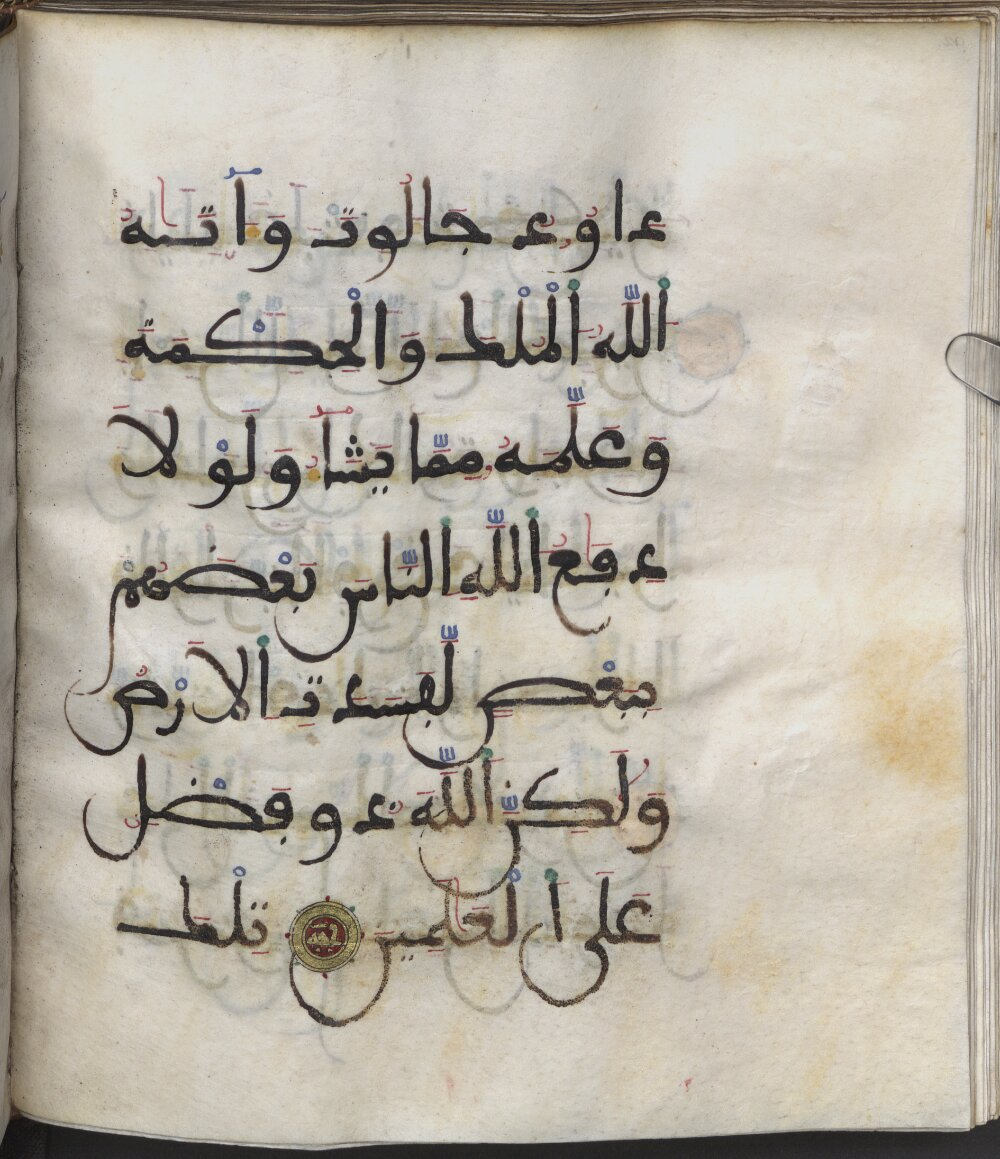 دَاوُۥدُ جَالُوتَ وَآتَىٰهُ
اللَّهُ الْمُلْكَ وَالْحِكْمَةَ
وَعَلَّمَهُۥ مِمَّا يَشَآءُ وَلَوْلَا
دِفَٰعُ اللَّهِ النَّاسَ بَعْضَهُمْ
بِبَعْضٍ لَّفَسَدَتِ الَارْضُ
وَلَٰكِنَّ اللَّهَ ذُو فَضْلٍ
عَلَى الْعَٰلَمِينَ تِلْكَ